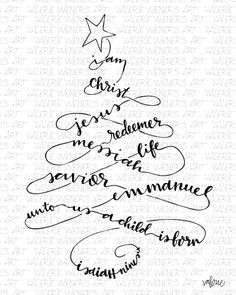 i am
Christ
jesus
redeemer
messiah life
savior emmanuel
unto us a child is born
isaiah nine six
valerie
VALERIE WIENERS ART